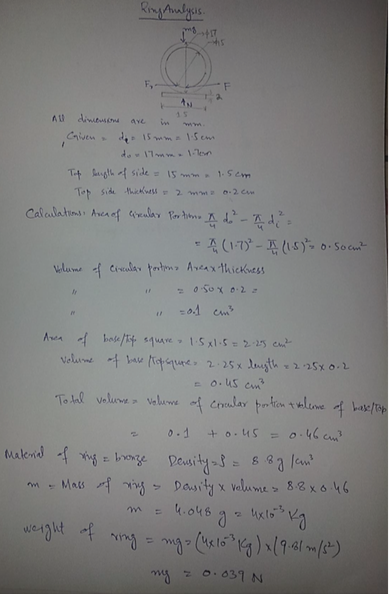 Ring Analysis.
mg φ17
φ15
Fr F
2
↑N
15
All dimensions are in mm.
Given = di = 15mm = 1.5cm
do = 17mm = 1.7cm
Top length of side = 15 mm = 1.5 cm
Top side thickness = 2 mm = 0.2 cm
Calculations: Area of Circular Portion = π/4 do² - π/4 di² =
= π/4 (1.7)² - π/4 (1.5)² = 0.50 cm²
Volume of Circular portion = Area x thickness
" " = 0.50 x 0.2 =
" " = 0.1 cm³
Area of base/Top square = 1.5 x 1.5 = 2.25 cm²
Volume of base/Topsquare = 2.25 x length = 2.25 x 0.2
= 0.45 cm³
Total volume = volume of Circular portion + volume of base/Top
= 0.1 + 0.45 = 0.46 cm³
Material of ring = bronze Density = ρ = 8.8 g/cm³
m = Mass of ring = Density x volume = 8.8 x 0.46
m = 4.048 g = 4x10⁻³ Kg
weight of ring = mg = (4x10⁻³ Kg) x (9.81 m/s²)
mg = 0.039 N